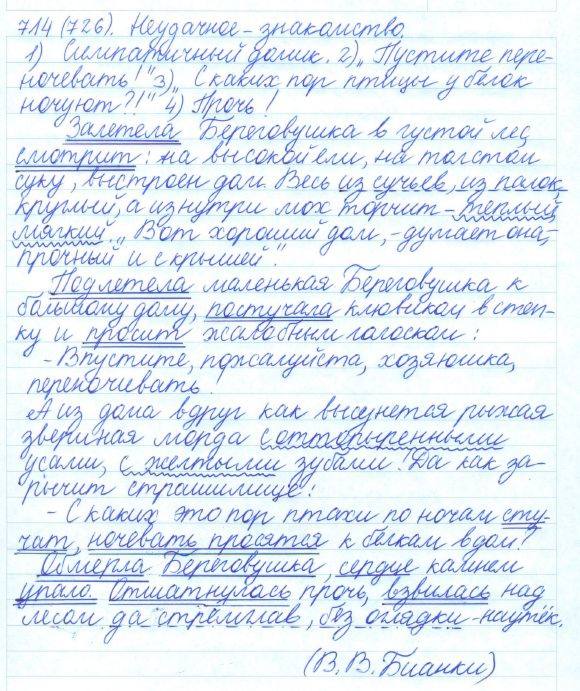 714 (726). Неудачное - знакомство.
1) Симпатичный домик. 2) „Пустите пере-
ночевать!" 3) „С каких пор птицы у белок
ночуют?!" 4) Прочь!
Залетела Береговушка в густой лес
смотрит: на высокой ели, на толстом
суку, выстроен дом. Весь из сучьев, из палок,
круглый, а изнутри мох торчит - теплый,
мягкий. „Вот хороший дом, - думает она, -
прочный и с крышей."
Подлетела маленькая Береговушка к
большому дому, постучала клювиком в стен-
ку и просит жалобным голоском:
- Впустите, пожалуйста, хозяюшка,
переночивать.
А из дома вдруг как высунется рыжая
звериная морда с оттопыренными
усами, с желтыми зубами! Да как за-
рычит страшилище:
- С каких это пор птахи по ночам сту-
чат, ночевать просятся к белкам в дом?
Обмерла Береговушка, сердце камнем
упало. Отшатнулась прочь, взвилась над
лесом да стремглав, без оглядки - наутёк.
(В. В. Бианки)